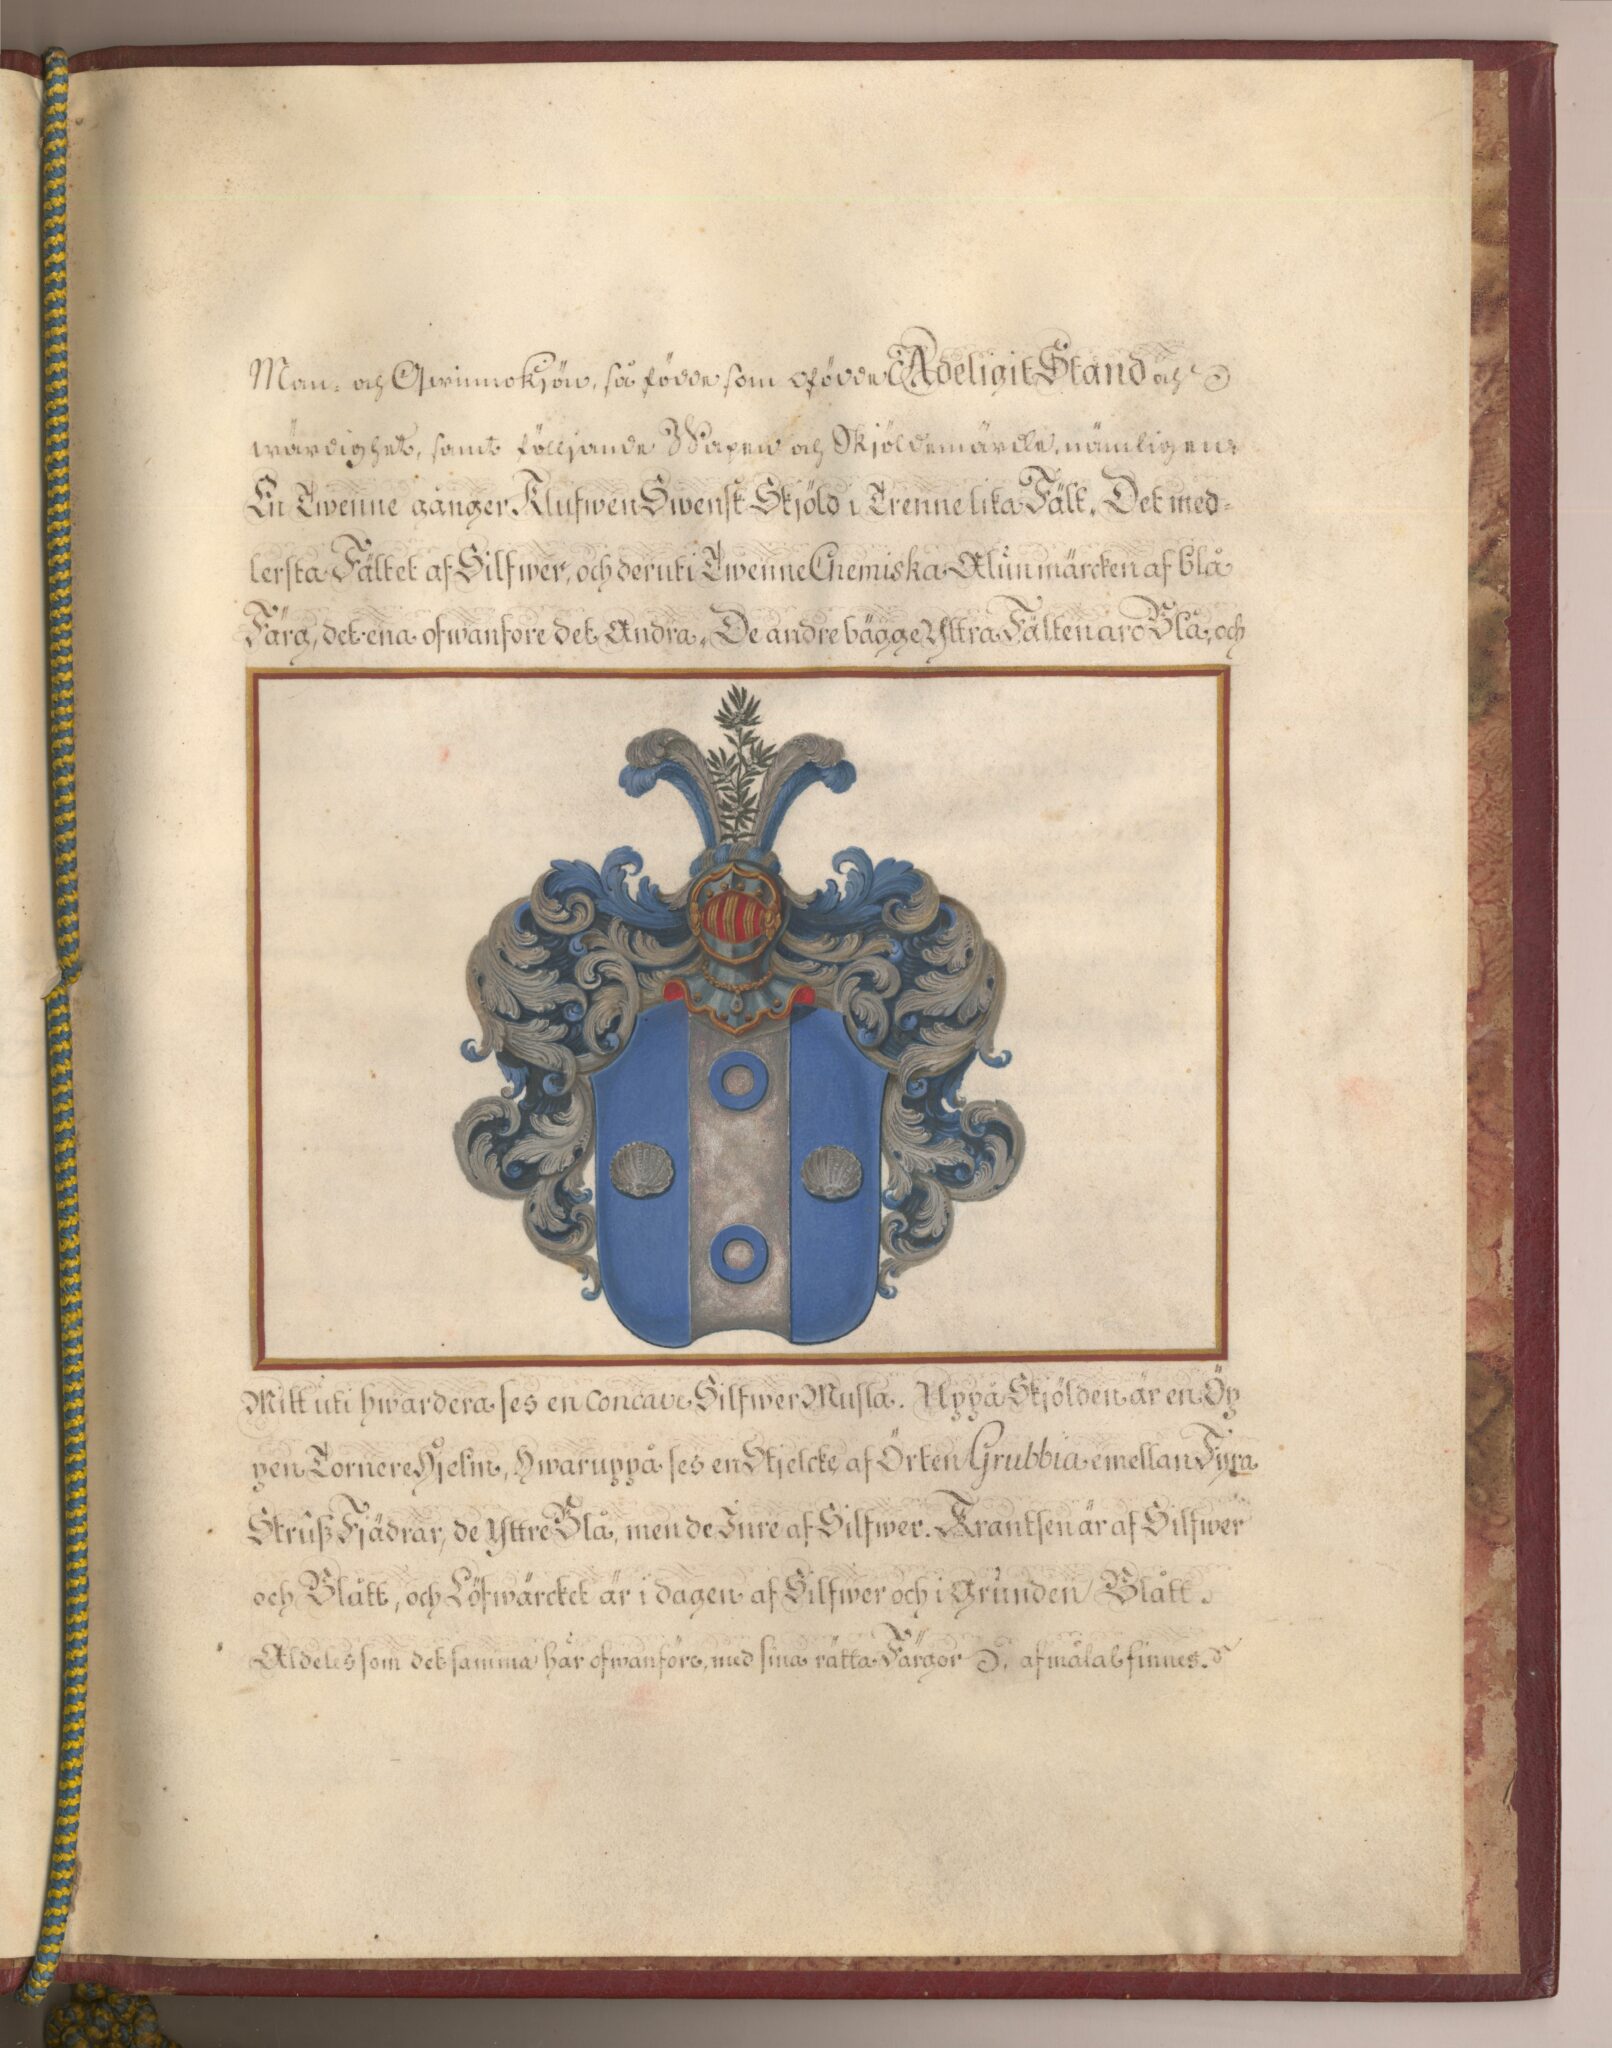 Man- och Qwinnokjön, så födde som ofödde Adeligit Stånd och
wärdighet, samt följjande Wapen och Skjöldemärcke, nämligen:
En Twenne gånger Klufwen Swensk Skjöld i Trenne lika Fält. Det med-
lersta Fältet af Silfwer, och deruti Twenne Chemiska Alûnmärcken af blå
Färg, det ena ofwanföre det Andra. De andre bägge Yttra Fälten äro Blå, och
Mitt uti hwardera ses en concave Silfwer Musla. Uppå Skjölden är en Öp
pen Tornere Hjelm, Hwaruppå ses en Stjelcke af Örten Grubbia emellan Fyra
Strûß Fjädrar, de Yttre Blå, men de Inre af Silfwer. Krantsen är af Silfwer
och Blått, och Löfwärcket är i dagen af Silfwer och i Grunden Blått.
Aldeles som det samma här ofwanföre, med sina rätta Färgor afmålat finnes.